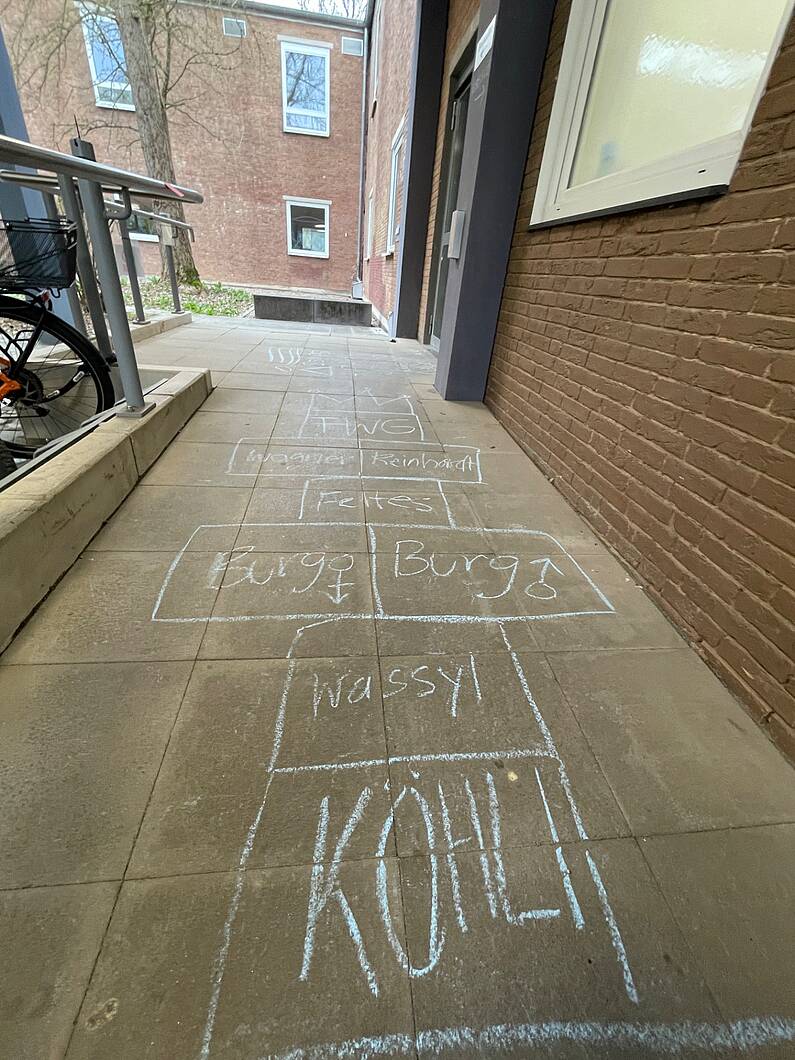 TWG
Wagner Reinhardt
Feltes
Burg ♀ Burg ♂
Wassyl
KÖHLI